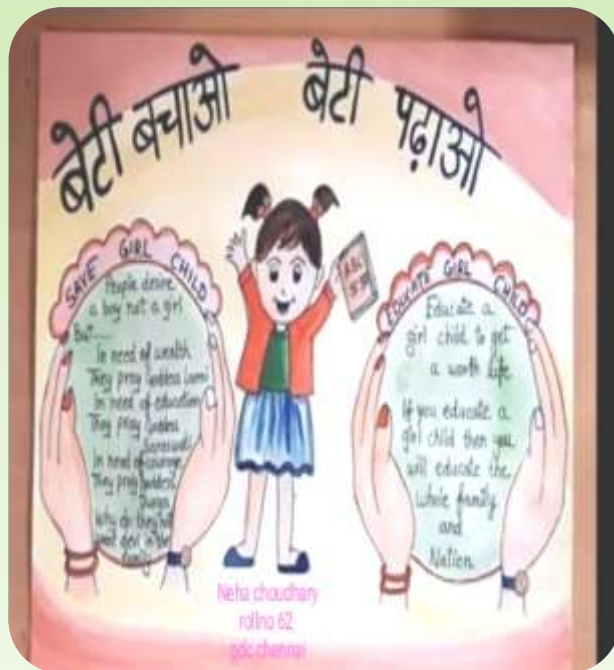 बेटी बचाओ बेटी पढ़ाओ
SAVE GIRL CHILD
People desire
a boy not a girl
But.....
In need of wealth
They pray Goddess Laxmi
In need of education
They pray Goddess
Saraswati
In need of courage
They pray Goddess
Durga
Why do they not
want girl in the
family
EDUCATE GIRL CHILD
Educate a
girl child to get
a worth life
If you educate a
girl child then you
will educate the
whole family
and
Nation
Neha choudhary
rollno 62
gdc chennai